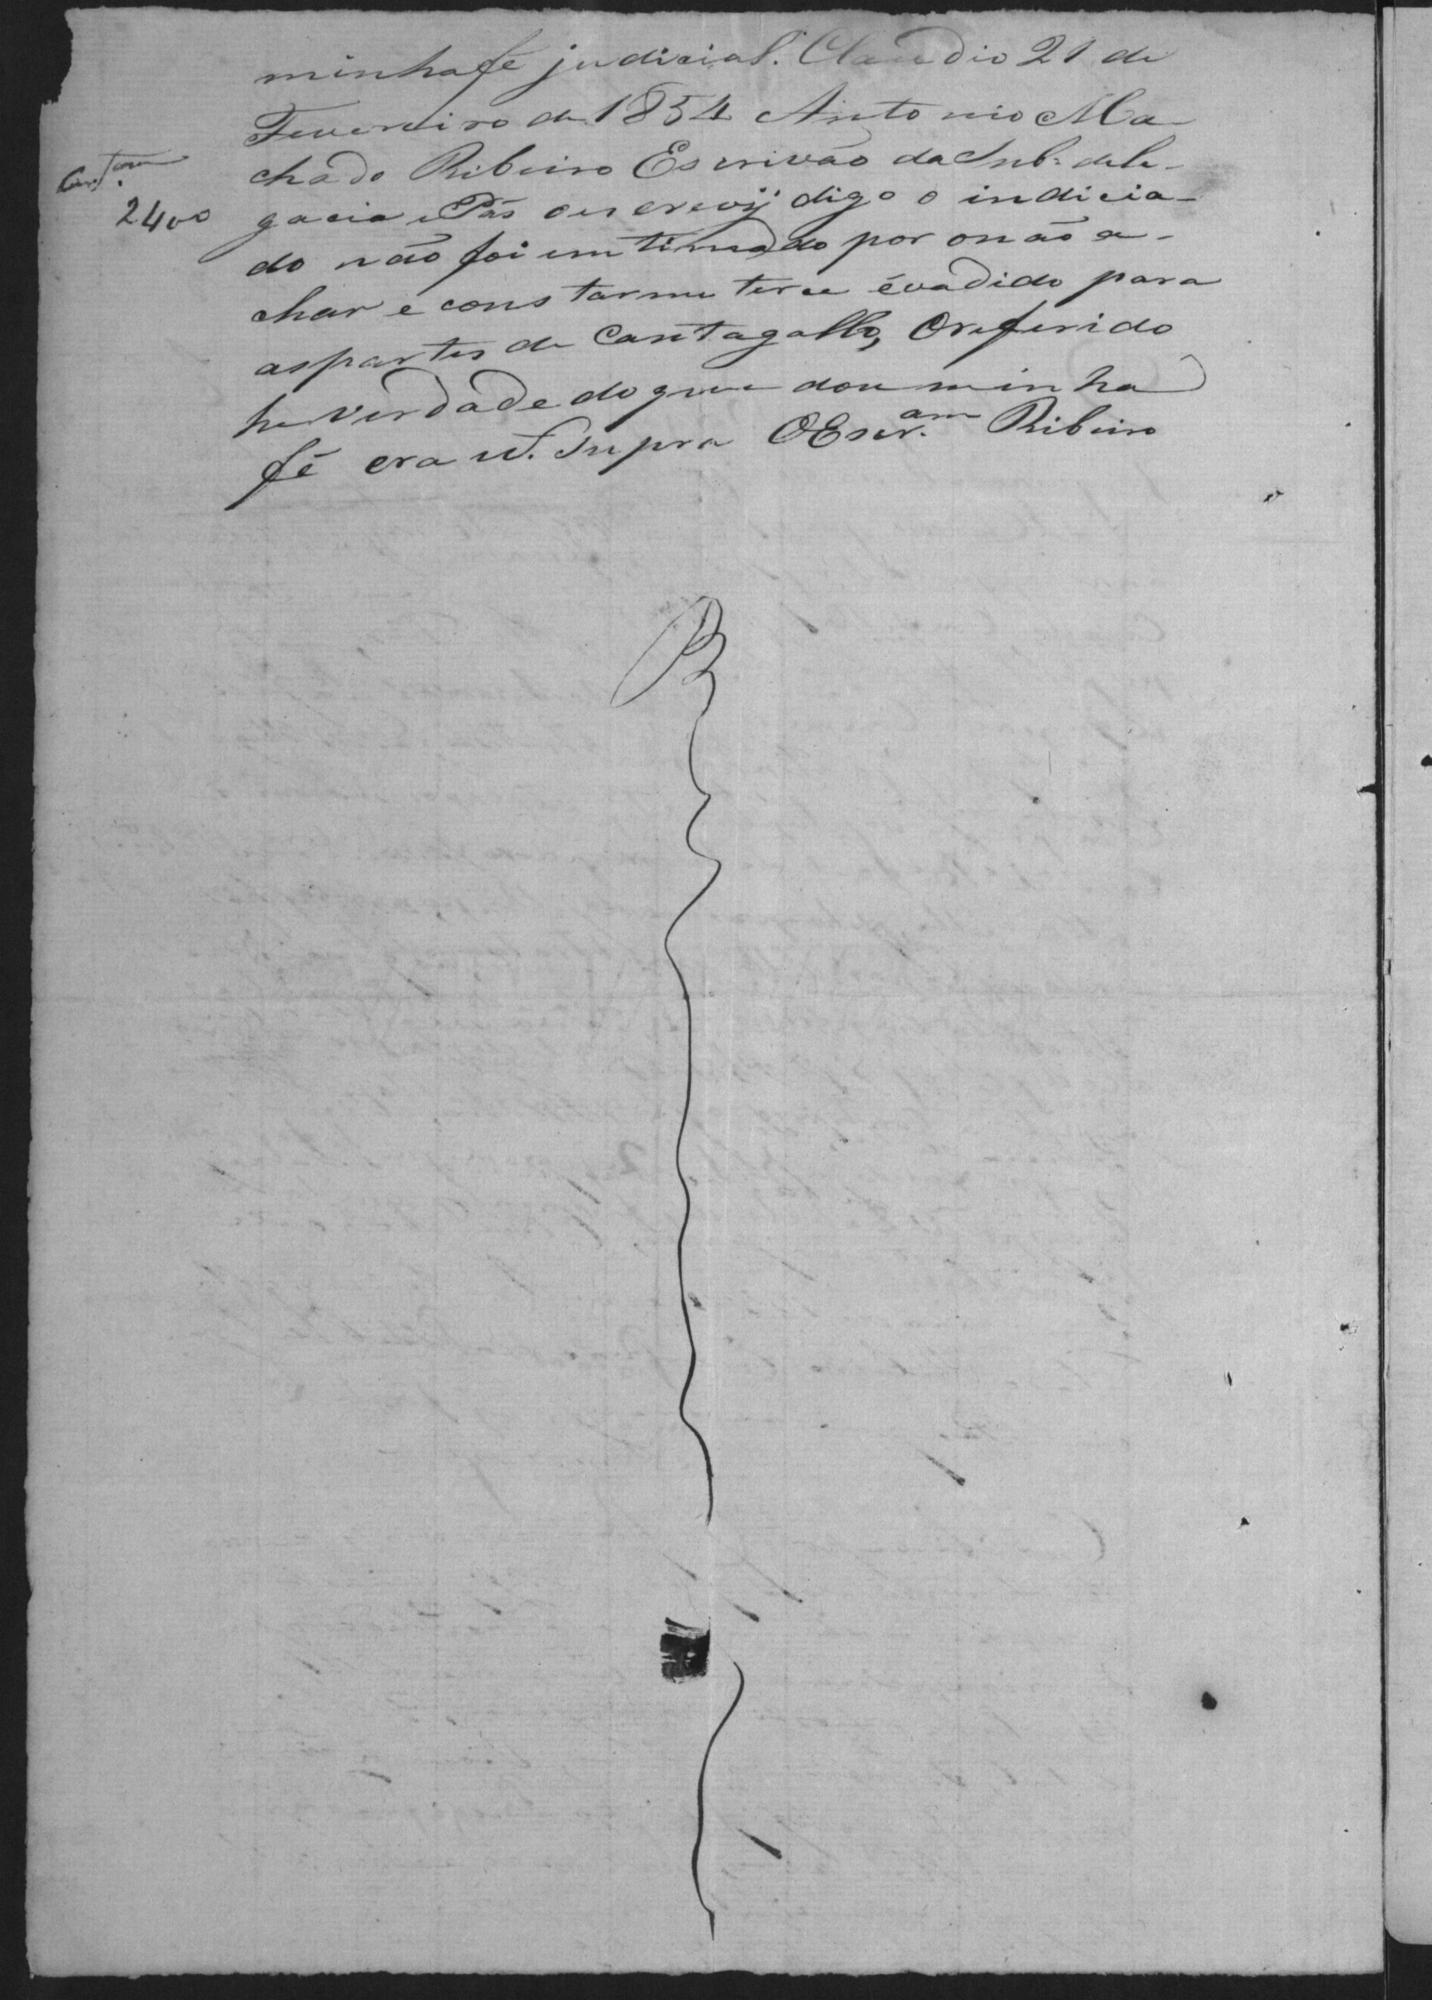 minha fé judicial. Claudio 21 de
Fevereiro de 1854 Antonio Ma-
chado Ribeiro Escrivão da Sub.dele-
2400
gacia e Pás o escrevij digo o indicia-
do não foi emtimado por o não a-
char e constarme terce évadido para
as partes de Cantagallo, O referido
he verdade do que dou minha
fé era ut. Supra O Escr.am Ribeiro